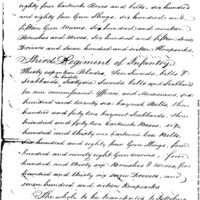 eighty four Cartouch Boxes and belts, six hundred
and eighty four Gun Slings, six hundred and
fifteen Gun Worms, six hundred and nineteen
Brushes and Wires, six hundred and fifteen Screw
Drivers and seven hundred and sixteen Knapsacks.
Third Regiment of Infantry
Thirty espontoon Blades, Ten Swords, belts &
Scabbards, swords belts and Scabbards
for non commissioned Officers and Musicians, six
hundred and twenty six bayonet Belts, three
hundred and forty two bayonet Scabbards, three
hundred and forty two Cartouch Boxes, six
hundred and thirty nine Cartouch Box Belts
six hundred and eighty four Gun Slings, four
hundred and ninety eight Gun Worms, four
hundred and thirty Brushes & Wires, four
hundred and thirty six screw Drivers, and
seven hundred and sixteen Knapsacks
The whole to be transported to Pittsburg